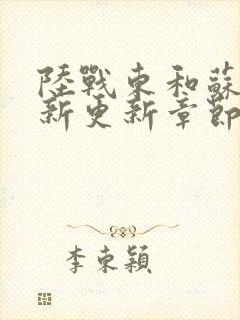 陸戰東和蘇
新更新章節
李東穎